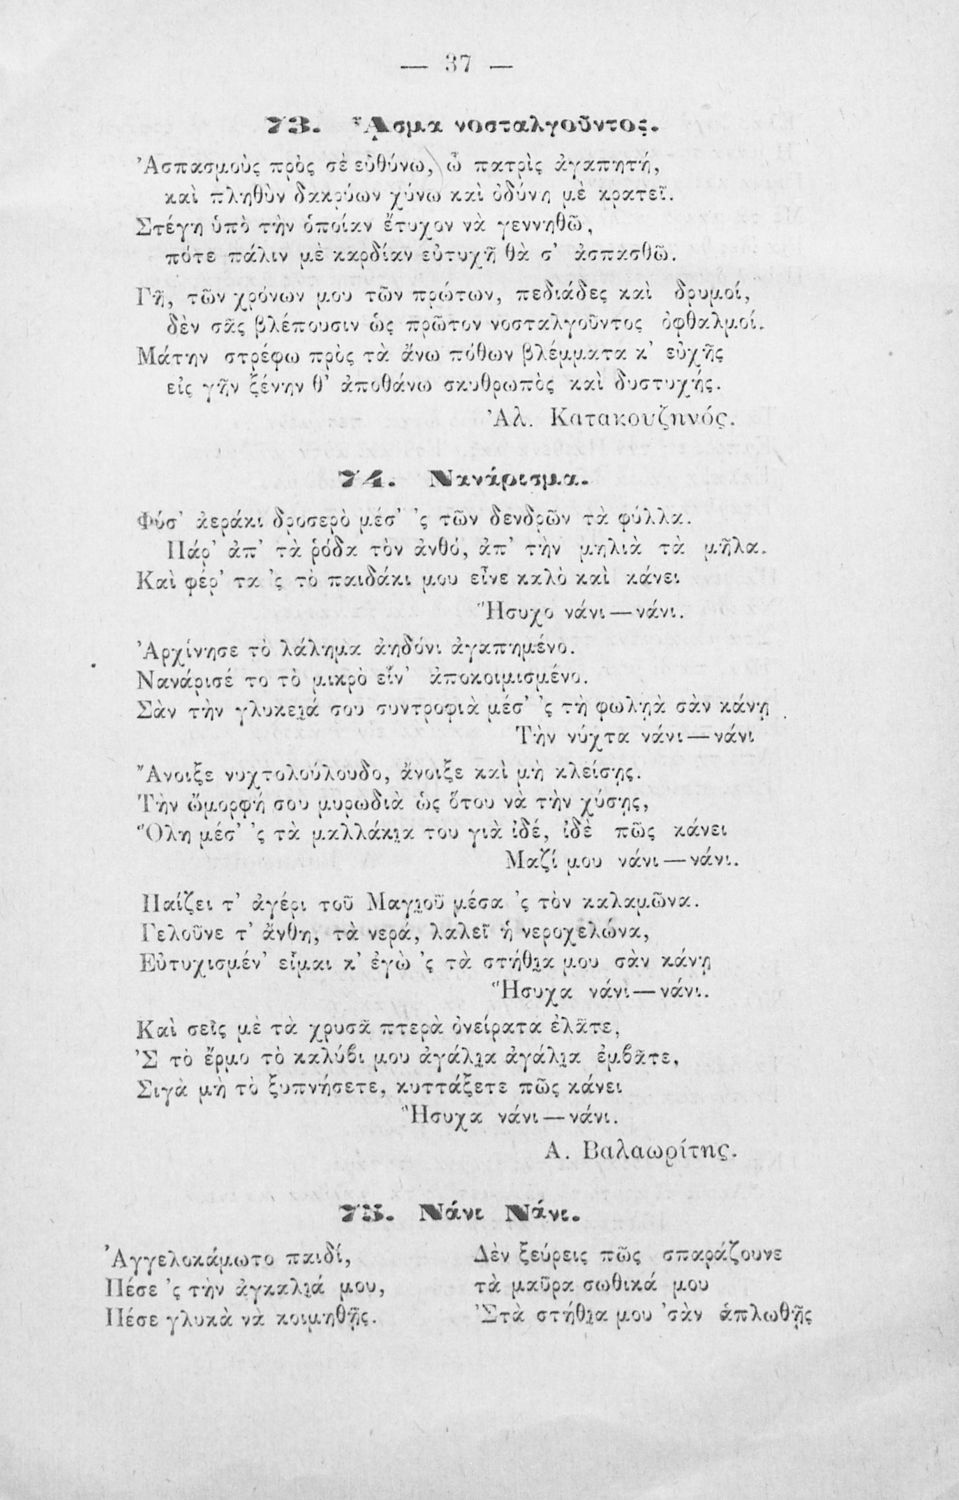 — 37 —
73. ᾎσμα νοσταλγοῦντος.
Ἀσπασμοὺς πρὸς σὲ εὐθύνω, ὦ πατρὶς ἀγαπητή,
καὶ πληθὺν δακρύων χύνω καὶ ὀδύνη μὲ κρατεῖ.
Στέγη ὑπὸ τὴν ὁποίαν ἔτυχον νὰ γεννηθῶ,
πότε πάλιν μὲ καρδίαν εὐτυχῆ θὰ σ' ἀσπασθῶ.
Γῆ, τῶν χρόνων μου τῶν πρώτων, πεδιάδες καὶ δρυμοί,
δὲν σᾶς βλέπουσιν ὡς πρῶτον νοσταλγοῦντος ὀφθαλμοί.
Μάτην στρέφω πρὸς τὰ ἄνω πόθων βλέμματα κ' εὐχῆς
εἰς γῆν ξένην θ' ἀποθάνω σκυθρωπὸς καὶ δυστυχής.
Ἀλ. Κατακουζηνός.
74. Νανάρισμα.
Φύσ' ἀεράκι δροσερὸ μέσ' 'ς τῶν δενδρῶν τὰ φύλλα.
Πάρ' ἀπ' τὰ ῥόδα τὸν ἀνθό, ἀπ' τὴν μηλιὰ τὰ μῆλα.
Καὶ φέρ' τα 'ς τὸ παιδάκι μου εἶνε καλὸ καὶ κάνει
Ἥσυχο νάνι — νάνι.
Ἀρχίνησε τὸ λάλημα ἀηδόνι ἀγαπημένο.
Νανάρισέ το τὸ μικρὸ εἶν' ἀποκοιμισμένο.
Σὰν τὴν γλυκειά σου συντροφιὰ μέσ' 'ς τὴ φωληὰ σὰν κάνῃ
Τὴν νύχτα νάνι — νάνι
Ἄνοιξε νυχτολούλουδο, ἄνοιξε καὶ μὴ κλείσῃς.
Τὴν ὤμορφή σου μυρωδιὰ ὡς ὅτου νὰ τὴν χύσῃς,
Ὅλη μέσ' 'ς τὰ μαλλάκια του γιὰ ἰδέ, ἰδὲ πῶς κάνει
Μαζί μου νάνι — νάνι.
Παίζει τ' ἀγέρι τοῦ Μαγιοῦ μέσα 'ς τὸν καλαμῶνα.
Γελοῦνε τ' ἄνθη, τὰ νερά, λαλεῖ ἡ νεροχελώνα,
Εὐτυχισμέν' εἶμαι κ' ἐγὼ 'ς τὰ στήθια μου σὰν κάνῃ
Ἥσυχα νάνι — νάνι.
Καὶ σεῖς μὲ τὰ χρυσᾶ πτερὰ ὀνείρατα ἐλᾶτε,
'Σ τὸ ἔρμο τὸ καλύβι μου ἀγάλια ἀγάλια ἐμβᾶτε,
Σιγὰ μὴ τὸ ξυπνήσετε, κυττάξετε πῶς κάνει
Ἥσυχα νάνι — νάνι.
Α. Βαλαωρίτης.
75. Νάνι Νάνι.
Ἀγγελοκάμωτο παιδί,
Πέσε 'ς τὴν ἀγκαλιά μου,
Πέσε γλυκὰ νὰ κοιμηθῇς.
Δὲν ξεύρεις πῶς σπαράζουνε
τὰ μαῦρα σωθικά μου
'Στὰ στήθια μου 'σὰν ἁπλωθῇς